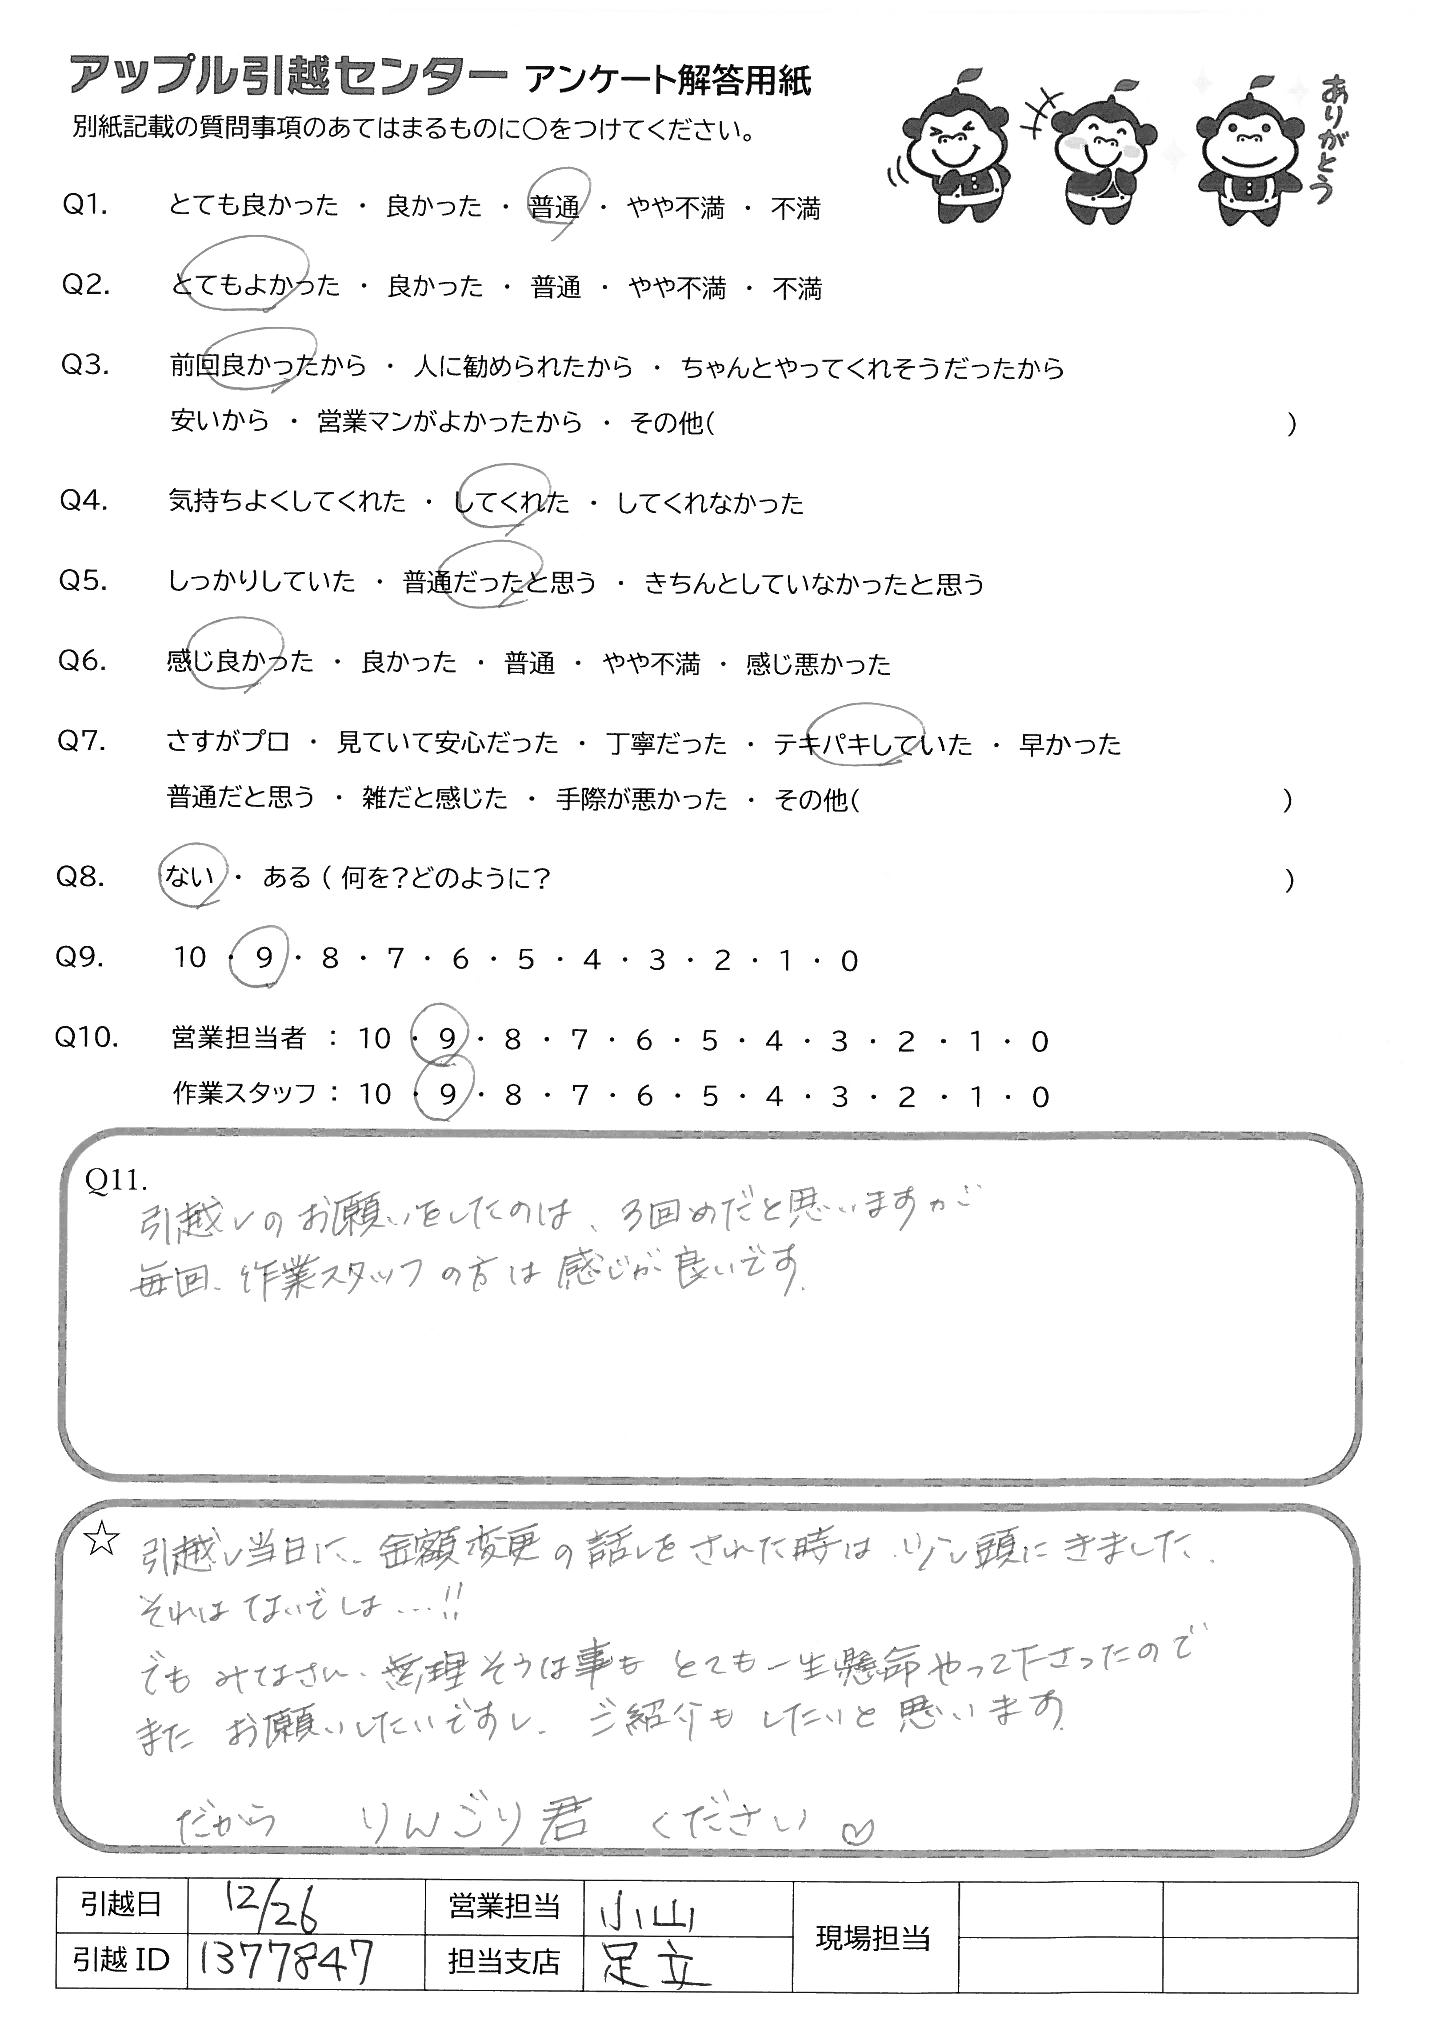 アップル引越センター アンケート解答用紙
別紙記載の質問事項のあてはまるものに○をつけてください。
ありがとう
Q1. とても良かった ・ 良かった ・ 普通 ・ やや不満 ・ 不満
Q2. とてもよかった ・ 良かった ・ 普通 ・ やや不満 ・ 不満
Q3. 前回良かったから ・ 人に勧められたから ・ ちゃんとやってくれそうだったから
安いから ・ 営業マンがよかったから ・ その他( )
Q4. 気持ちよくしてくれた ・ してくれた ・ してくれなかった
Q5. しっかりしていた ・ 普通だったと思う ・ きちんとしていなかったと思う
Q6. 感じ良かった ・ 良かった ・ 普通 ・ やや不満 ・ 感じ悪かった
Q7. さすがプロ ・ 見ていて安心だった ・ 丁寧だった ・ テキパキしていた ・ 早かった
普通だと思う ・ 雑だと感じた ・ 手際が悪かった ・ その他( )
Q8. ない ・ ある ( 何を?どのように? )
Q9. 10 ・ 9 ・ 8 ・ 7 ・ 6 ・ 5 ・ 4 ・ 3 ・ 2 ・ 1 ・ 0
Q10. 営業担当者 : 10 ・ 9 ・ 8 ・ 7 ・ 6 ・ 5 ・ 4 ・ 3 ・ 2 ・ 1 ・ 0
作業スタッフ : 10 ・ 9 ・ 8 ・ 7 ・ 6 ・ 5 ・ 4 ・ 3 ・ 2 ・ 1 ・ 0
Q11.
引越しのお願いをしたのは、3回めだと思いますが
毎回、作業スタッフの方は感じが良いです。
☆ 引越し当日に、金額変更の話しをされた時は、ツン頭にきました、
それはないでしよ…!!
でもみなさん、無理そうな事もとても一生懸命やって下さったので
またお願いしたいですし、ご紹介もしたいと思います。
だから りんごり君 ください♡
引越日 12/26 営業担当 小山 現場担当
引越ID 1377847 担当支店 足立